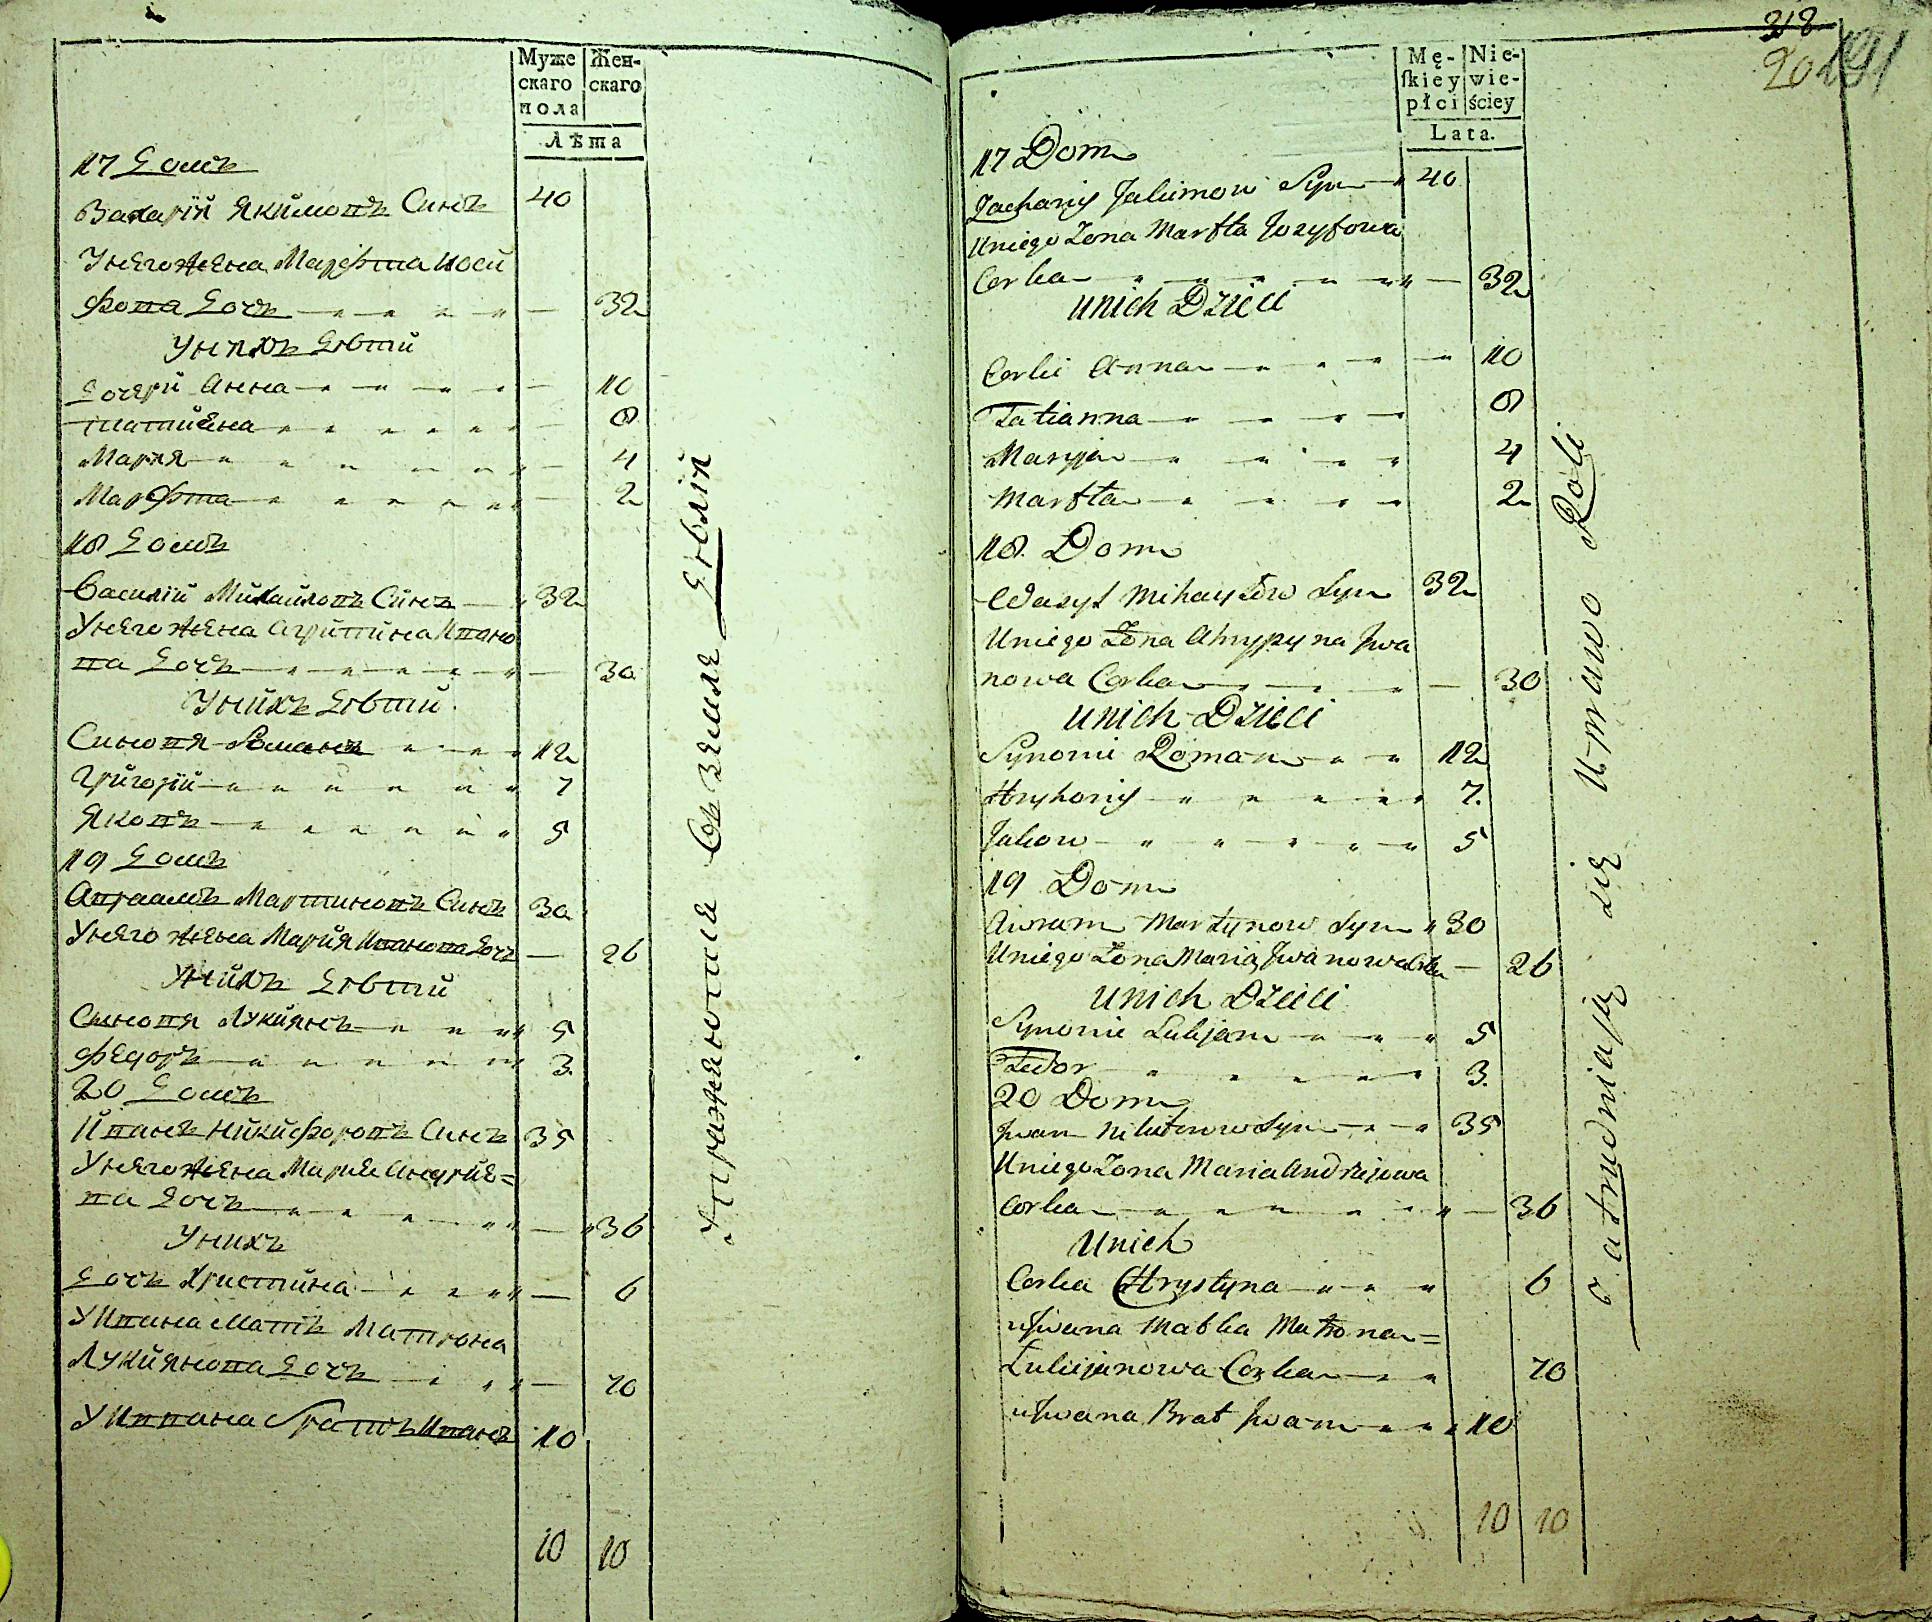 Муже
скаго
пола
Жен-
скаго
Лѣта
17 Домъ
Захарїй Якимовъ Синъ 40
Унего жена Марфта Иоси
фова Дочъ 32
Унихъ Дѣти
Дочери Анна 10
Татияна 8
Мария 4
Марфта 2
18 Домъ
Василїй Михайловъ Синъ 32
Унего жена Агрипина Ивано
ва Дочъ 30
Унихъ Дѣти
Синовя Романъ 12
Григорїй 7
Яковъ 5
19 Домъ
Авраамъ Мартиновъ Синъ 30
Унего жена Мария Иванова Дочъ 26
Унихъ Дѣти
Синовя Лукиянъ 5
Федоръ 3
20 Домъ
Иванъ Никифоровъ Синъ 35
Унего жена Мария Андрие=
ва Дочъ 36
Унихъ
Дочъ Христина 6
У Ивана Мать Матрона
Лукиянова Дочъ 70
У Ивана Братъ Иванъ 10
10 10
318
20
191
Mę-
skiey
płci
Nie-
wie-
ściey
Lata.
17 Dom
Zacharij Jakimow Syn 40
Uniego Zona Marfta Jozyfowa
Corka 32
Unich Dzieci
Corki Anna 10
Tatianna 8
Maryja 4
Marfta 2
18. Dom
Wasyl Mihayłow Syn 32
Uniego Zona Ahrypyna Jwa
nowa Corka 30
Unich Dzieci
Synowie Roman 12
Hryhorij 7.
Jakow 5
19 Dom
Awram Martynow Syn 30
Uniego Zona Maria Jwanowa Corka 26
Unich Dzieci
Synowie Lukjan 5
Fedor 3.
20 Dom
Jwan Nikiforow Syn 35
Uniego Zona Maria Andrejowa
Corka 36
Unich
Corka Chrystyna 6
uJwana Matka Matrona=
Lukijanowa Corka 70
uJwana Brat Jwan 10
10 10